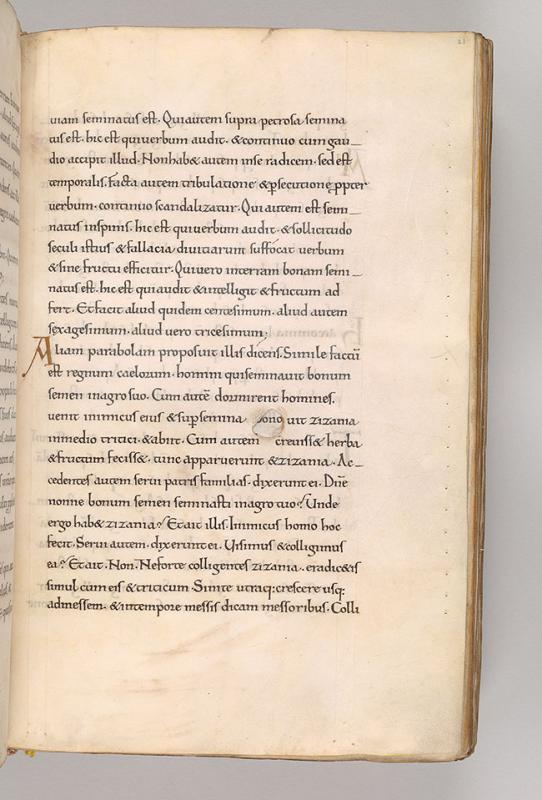 uiam seminatus est. Qui autem supra petrosa semina
tus est. hic est qui uerbum audit. & continuo cum gau
dio accipit illud. Non hab& autem inse radicem. sed est
temporalis. Facta autem tribulatione & p̱secutione ꝓpter
uerbum. continuo scandalizatur. Qui autem est semi
natus inspinis. hic est qui uerbum audit. & sollicitudo
seculi istius & fallacia diuitiarum suffocat uerbum
& sine fructu efficitur. Qui uero interram bonam semi
natus est. hic est qui audit & intelligit & fructum ad
fert. Et facit aliud quidem centesimum. aliud autem
sexagesimum. aliud uero tricesimum;
Aliam parabolam proposuit illis dicens. Simile factū
est regnum caelorum. homini qui seminauit bonum
semen in agro suo. Cum autē dormirent homines.
uenit inimicus eius & sup̱semina uit zizania
inmedio tritici. & abiit. Cum autem creuiss& herba
& fructum feciss&. tunc apparuerunt & zizania. Ac
cedentes autem serui patris familias. dixerunt ei. Dn̄e
nonne bonum semen seminasti in agro tuo? Unde
ergo hab& zizania? Et ait illis. Inimicus homo hoc
fecit. Serui autem. dixerunt ei. Uis imus & colligimus
ea? Et ait. Non. Ne forte colligentes zizania. eradic&is
simul cum eis & triticum. Sinite utraq; crescere usq;
ad messem. & intempore messis dicam messoribus. Colli